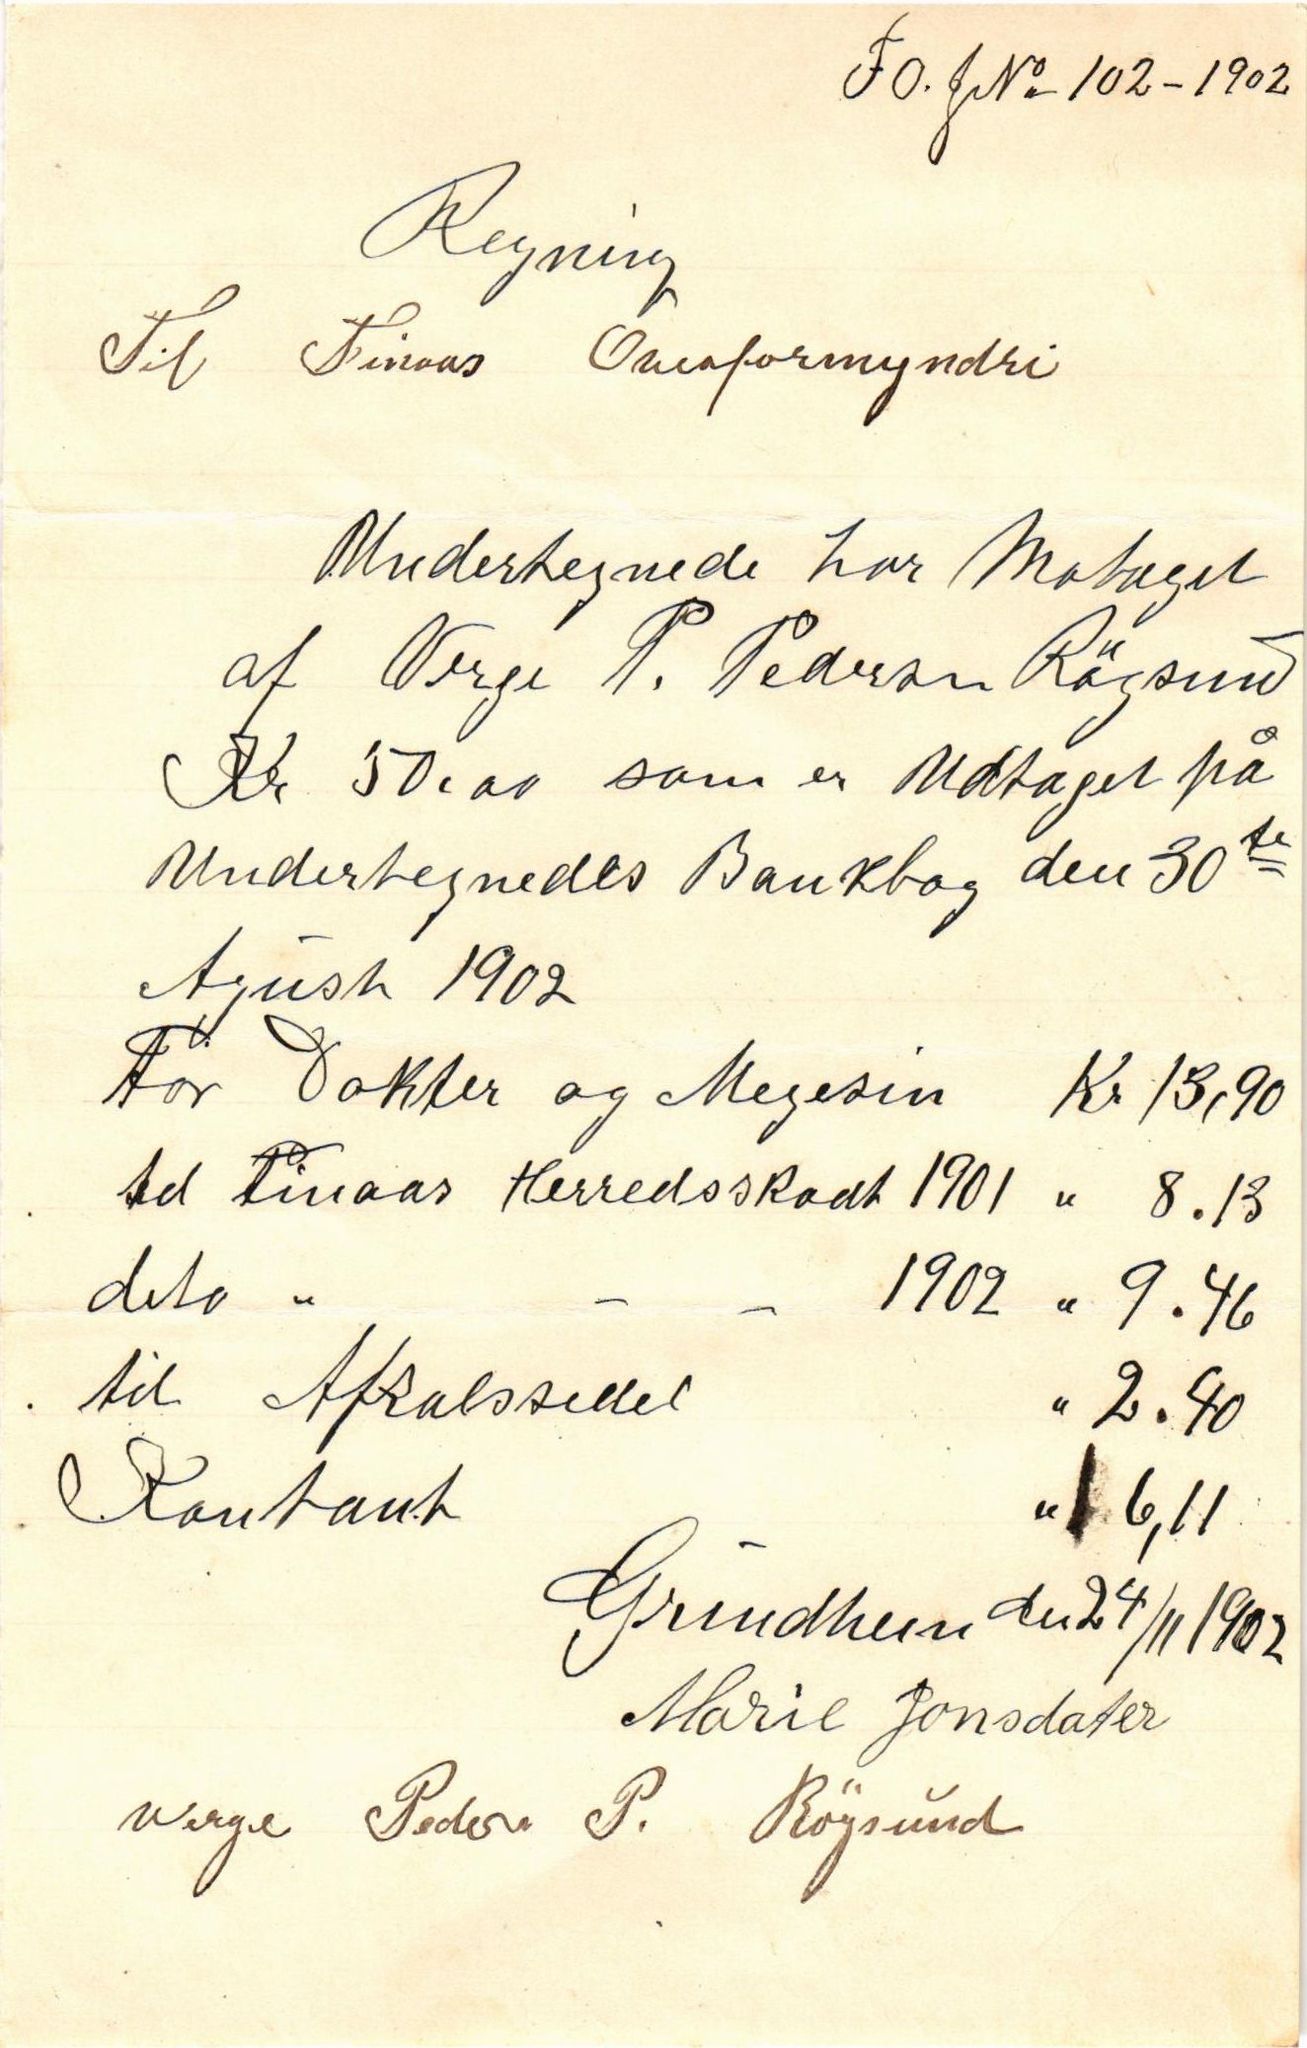 F O. J No 102 - 1902
Regning
Til Finaas Overformyndri
Undertegnede har Motaget
af Verge P. Pederson Rögsund
Kr 50,00 som er Udtaget på
Undertegnedes Bankbog den 30te
Agust 1902
För Dokter og Megesin Kr 13,90
td Finaas Herredsskadt 1901 " 8.13
deto " — — 1902 " 9.46
til Afkalssedel " 2.40
Kontant " 16,11
Grindheim den 24/11 1902
Marie Jonsdater
verge Peder P. Röysund